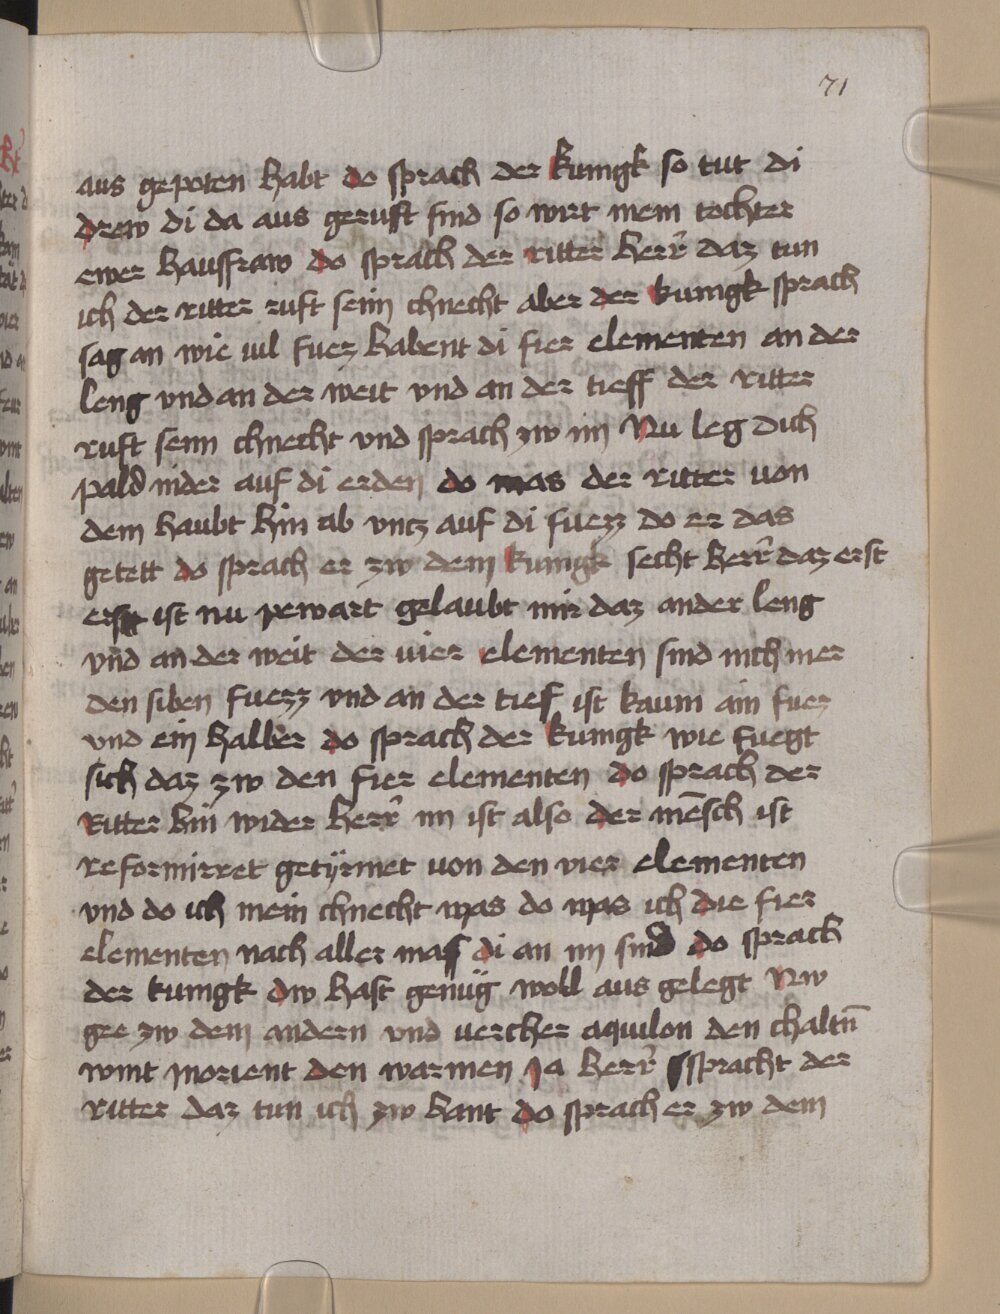 71
aus gepoten habt do sprach der kunigk so tut di
drew di da aus geruft sind so wirt mein tochter
ewer hausfraw do sprach der ritter herr̄ daz tun
ich der ritter ruft seim chnecht aber der kunigk sprach
sag an wie uil fuez habent di fier elementen an der
leng vnd an der weit vnd an der tieff der ritter
ruft seim chnecht vnd sprach zw im Nu leg dich
pald nider auf di erden do mas der ritter von
dem haubt hin ab vntz auf di fuezz do er das
getett do sprach er zw dem kunigk secht herr̄ daz erst
ist nu pewart gelaubt mir daz an der leng
vnd an der weit der uier elementen sind nich mer
den siben fuezz vnd an der tief ist kaum ain fuez
vnd ein halber do sprach der kunigk wie fuegt
sich daz zw den fier elementen do sprach der
Ritter hin wider herr̄ im ist also der mēsch ist
reformirret getÿrmet von den vier elementen
vnd do ich mein chnecht mas do mas ich die fier
elementen nach aller mass di an im sind do sprach
der kunigk dw hast genüg woll aus gelegt Nw
gee zw dem andern vnd vercher aquilon den chaltn̄
wint in orient den warmen Ja herr̄ spracht der
ritter daz tun ich zw hant do sprach er zw dem